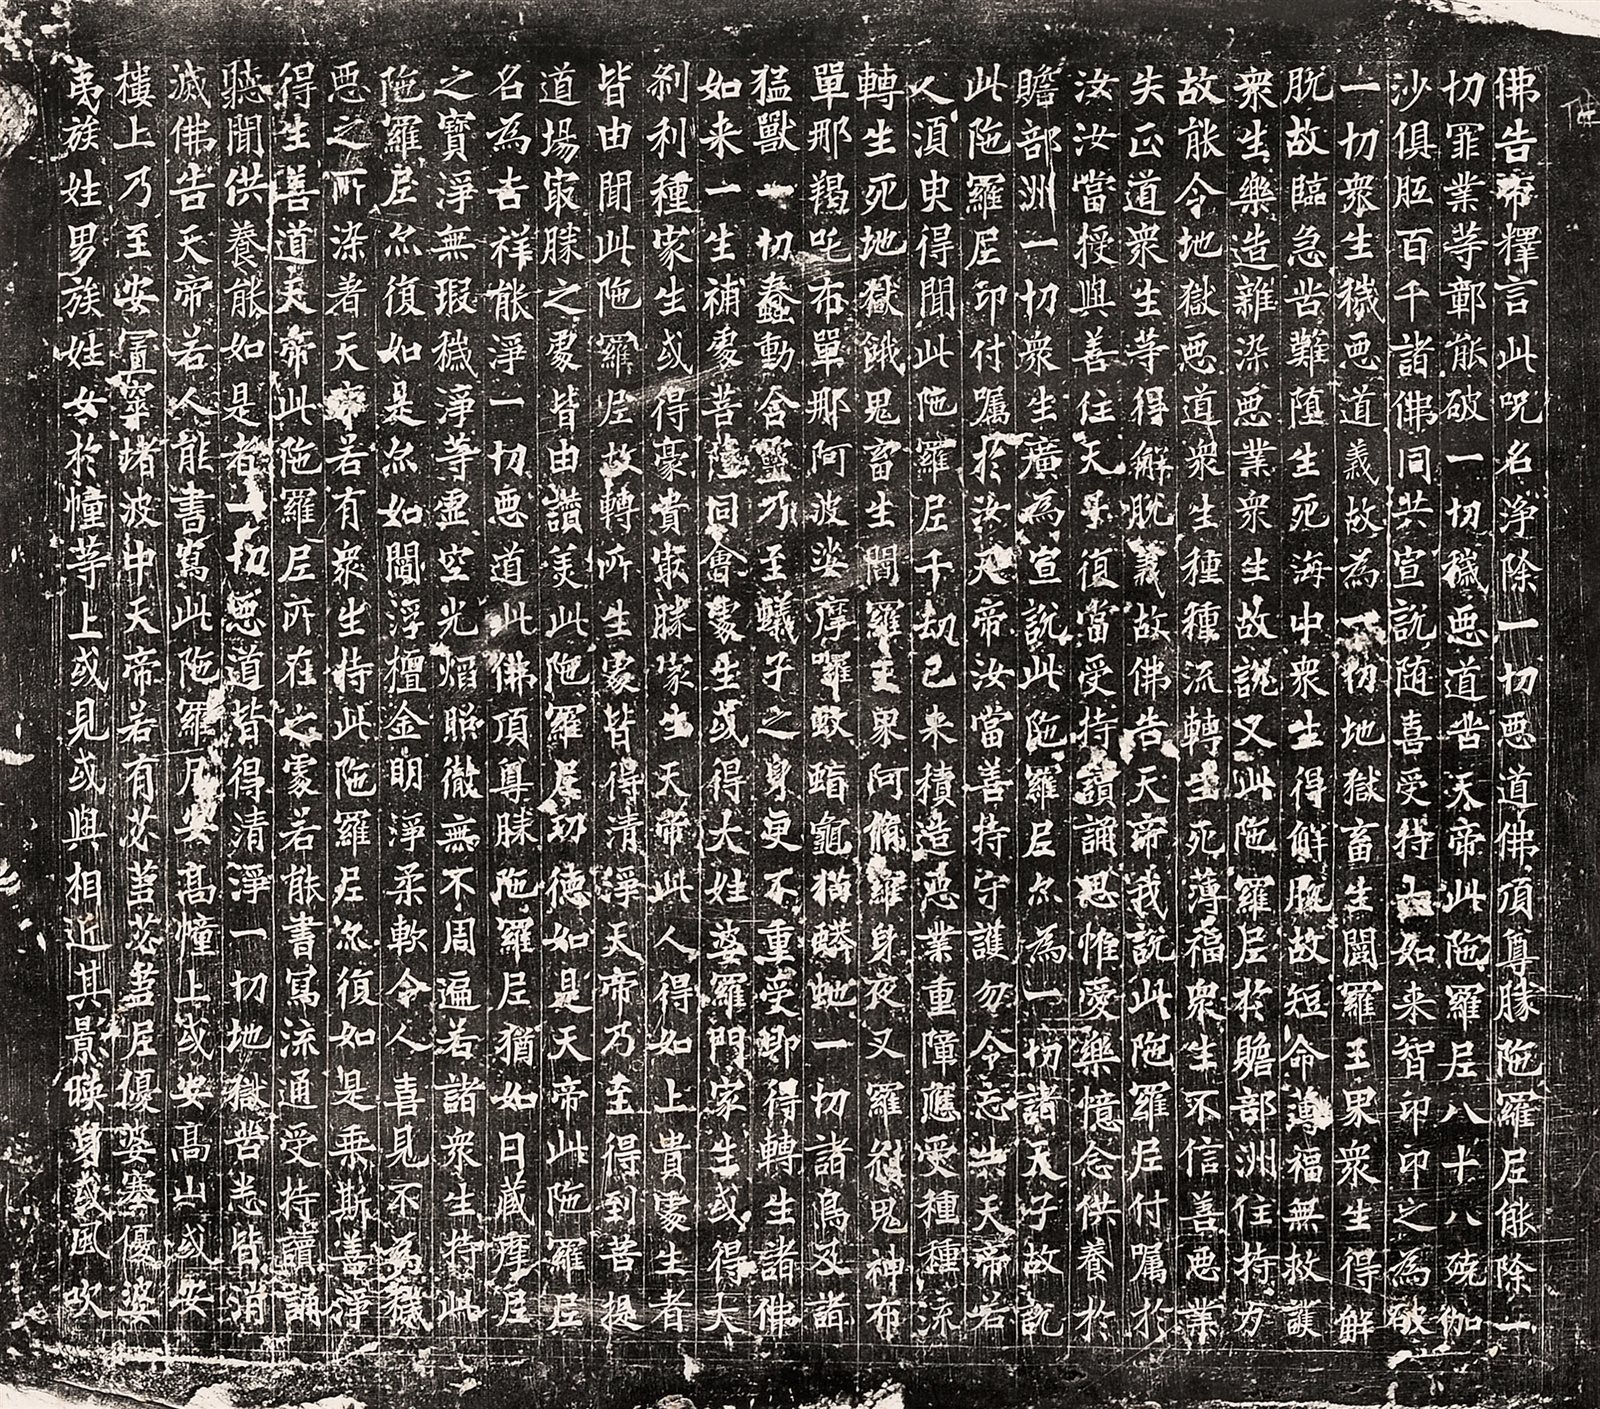 佛告帝釋言此呪名淨除一切惡道佛頂尊勝陁羅尼能除一
切罪業等鄣能破一切穢惡道苦天帝此陁羅尼八十八殑伽
沙俱胝百千諸佛同共宣說随喜受持如来智印印之為破
一切衆生穢惡道義故為一切地獄畜生閻羅王界衆生得解
脫故臨急苦難堕生死海中衆生得解脫故短命薄福無救護
衆生樂造雜染惡業衆生故說又此陁羅尼於贍部洲住持力
故能令地獄惡道衆生種種流轉生死薄福衆生不信善惡業
失正道衆生等得解脫義故佛告天帝我說此陁羅尼付嘱於
汝汝當授與善住天子復當受持讀誦思惟愛樂憶念供養於
贍部洲一切衆生廣為宣說此陁羅尼亦為一切諸天子故說
此陁羅尼印付嘱於汝天帝汝當善持守護勿令忘失天帝若
人須臾得聞此陁羅尼千劫已来積造惡業重障應受種種流
轉生死地獄餓鬼畜生閻羅王界阿脩羅身夜叉羅剎鬼神布
單那羯吒布單那阿波娑摩囉蚊蝐龜猫蟒虵一切諸鳥及諸
猛獸一切蠢動含靈乃至蟻子之身更不重受即得轉生諸佛
如来一生補處菩薩同會處生或得大姓婆羅門家生或得大
剎利種家生或得豪貴冣勝家生天帝此人得如上貴處生者
皆由聞此陁羅尼故轉所生處皆得清淨天帝乃至得到菩提
道場冣勝之處皆由讚美此陁羅尼功德如是天帝此陁羅尼
名為吉祥能淨一切惡道此佛頂尊勝陁羅尼猶如日藏摩尼
之寶淨無瑕穢淨等虛空光焰照徹無不周遍若諸衆生持此
陁羅尼亦復如是亦如閻浮檀金明淨柔軟令人喜見不為穢
惡之所染著天帝若有衆生持此陁羅尼亦復如是乘斯善淨
得生善道天帝此陁羅尼所在之處若能書寫流通受持讀誦
聽聞供養能如是者一切惡道皆得清淨一切地獄苦悉皆消
滅佛告天帝若人能書寫此陁羅尼安高幢上或安高山或安
樓上乃至安置窣堵波中天帝若有苾蒭苾蒭尼優婆塞優婆
夷族姓男族姓女於幢等上或見或與相近其影暎身或風吹